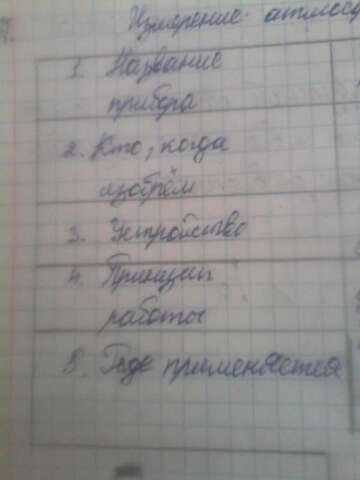 Измерение атмос
1. Название
прибора
2. Кто, когда
изобрём
3. Устройство
4. Принцип
работы
5. Где применяется